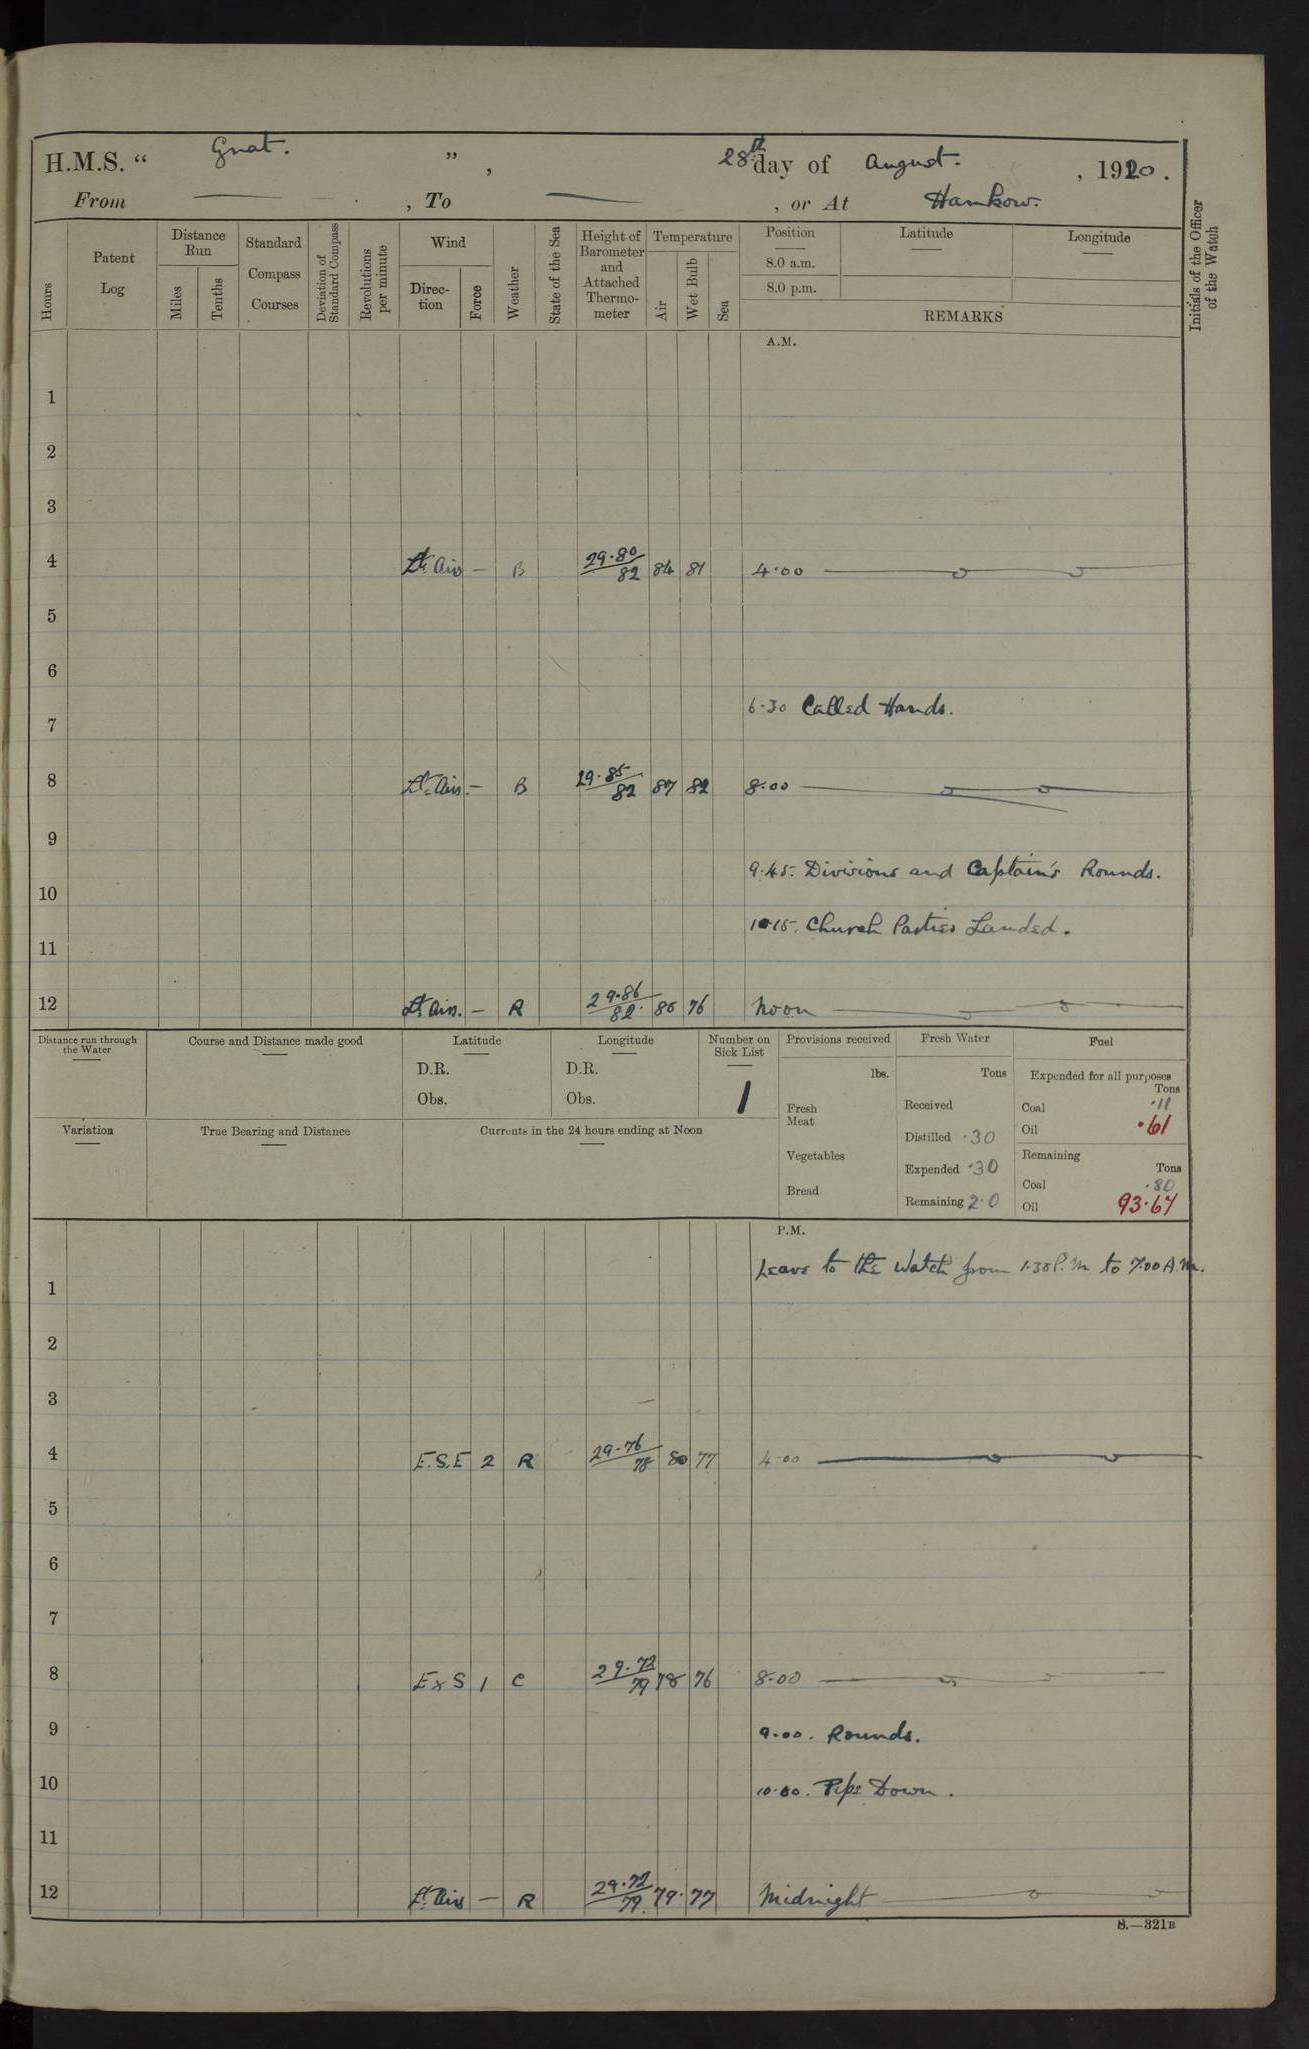 H.M.S. “ Gnat. ” , 28th day of August. , 1920.
From — , To — , or At Hankow.
Hours
Patent Log
Distance Run
Miles
Tenths
Standard Compass Courses
Deviation of Standard Compass
Revolutions per minute
Wind
Direction
Force
Weather
State of the Sea
Height of Barometer and Attached Thermometer
Temperature
Air
Wet Bulb
Sea
Position
8.0 a.m.
8.0 p.m.
Latitude
Longitude
REMARKS
Initials of the Officer of the Watch
A.M.
1
2
3
4 Lt. Airs — B 29.80/82 84 81 4.00
5
6
6.30 Called Hands.
7
8 Lt. Airs. — B 29.85/82 87 82 8.00
9
9.45. Divisions and Captain's Rounds.
10
10.15. Church Parties Landed.
11
12 Lt Airs. — R 29.86/82. 76 Noon
Distance run through the Water
Course and Distance made good
Latitude
D.R.
Obs.
Longitude
D.R.
Obs.
Number on Sick List
1
Provisions received
lbs.
Fresh Meat
Vegetables
Bread
Fresh Water
Tons
Received
Distilled .30
Expended .30
Remaining 2.0
Fuel
Expended for all purposes
Tons
Coal .11
Oil .61
Remaining
Tons
Coal .80
Oil 93.67
Variation
True Bearing and Distance
Currents in the 24 hours ending at Noon
P.M.
Leave to the Watch from 1.30 P.M to 7.00 A.M.
1
2
3
4 E.S.E 2 R 29.76/78 80 77 4.00
5
6
7
8 E x S 1 C 29.72/79 78 76 8.00
9 9.00. Rounds.
10 10.00. Pipe Down.
11
12 Lt. Airs — R 29.72/79. 79. 77 Midnight
S.—321B